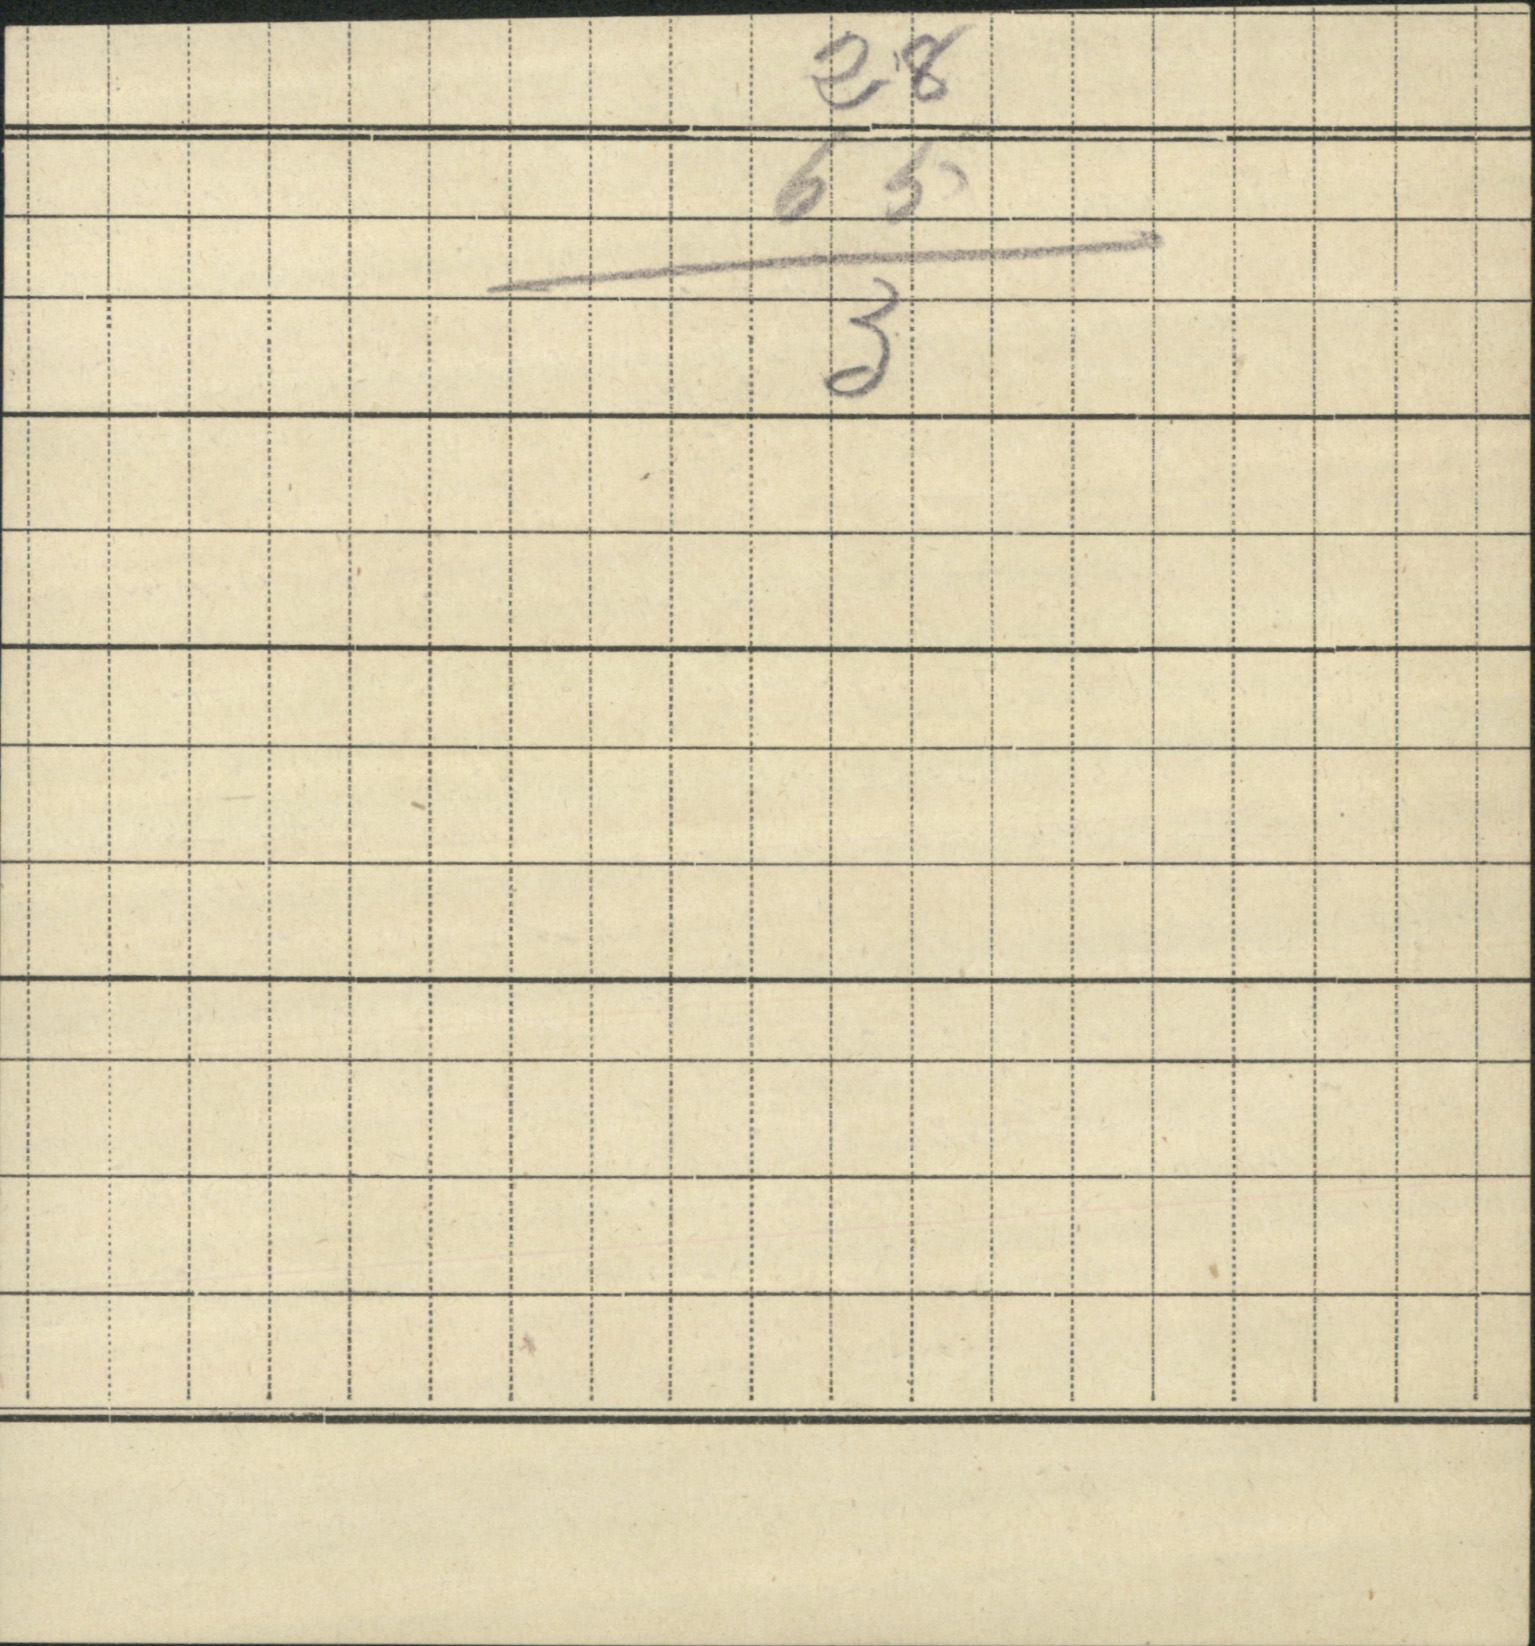 28
65
3